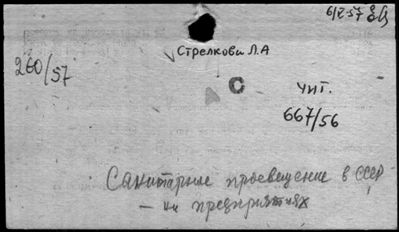 6/V-57
Стрелкова Л.А
260/57
С
А
чит.
667/56
Санитарное просвещение в СССР
— на предприятиях